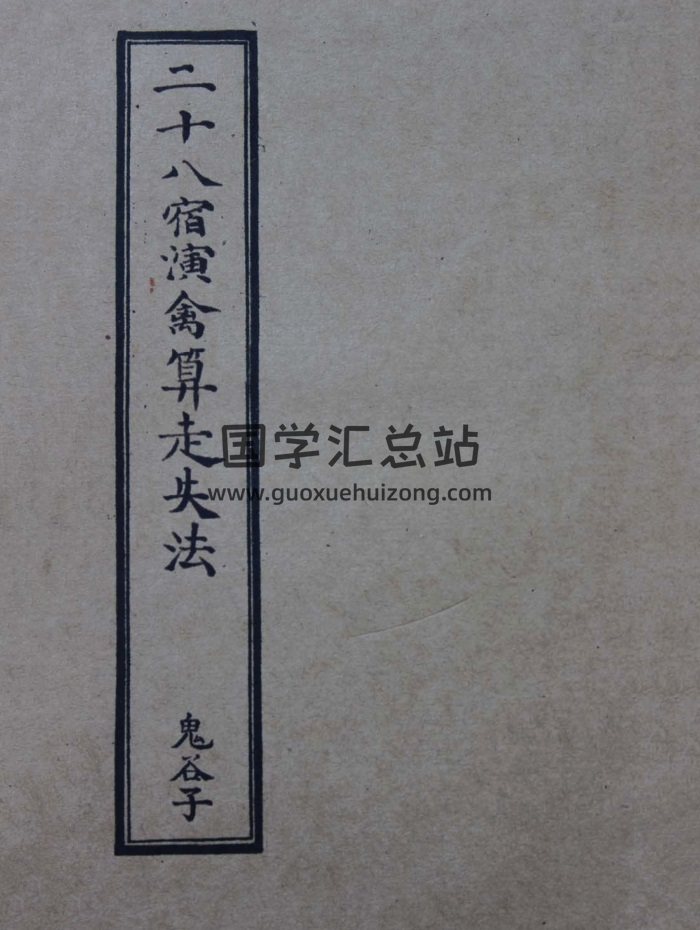 二十八宿演禽算走失法
鬼谷子
国学汇总站
www.guoxuehuizong.com